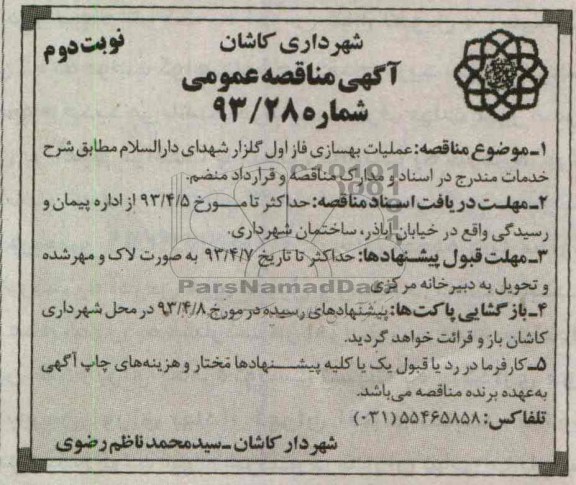 شهرداری کاشان
نوبت دوم
آگهی مناقصه عمومی
شماره ۹۳/۲۸
۱ـ موضوع مناقصه: عملیات بهسازی فاز اول گلزار شهدای دارالسلام مطابق شرح
خدمات مندرج در اسناد و مدارک مناقصه و قرارداد منضم.
۲ـ مهلت دریافت اسناد مناقصه: حداکثر تا مورخ ۹۳/۴/۵ از اداره پیمان و
رسیدگی واقع در خیابان اباذر، ساختمان شهرداری.
۳ـ مهلت قبول پیشنهادها: حداکثر تا تاریخ ۹۳/۴/۷ به صورت لاک و مهر شده
و تحویل به دبیرخانه مرکزی.
۴ـ بازگشایی پاکت ها: پیشنهادهای رسیده در مورخ ۹۳/۴/۸ در محل شهرداری
کاشان باز و قرائت خواهد گردید.
۵ـ کارفرما در رد یا قبول یک یا کلیه پیشنهادها مختار و هزینه‌های چاپ آگهی
به‌عهده برنده مناقصه می‌باشد.
تلفاکس: ۵۵۴۶۵۸۵۸ (۰۳۱)
شهردار کاشان ـ سیدمحمد ناظم رضوی
ParsNamadData